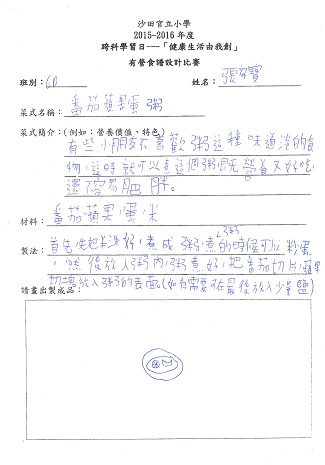 沙田官立小學
2015-2016 年度
跨科學習日---「健康生活由我創」
有營食譜設計比賽
班別：6D 姓名：張
菜式名稱：番茄蘋果蛋粥
菜式簡介：(例如：營養價值、特色)
有些小朋友不喜歡粥這種味道淡的食
物，這時就可以煮這個粥，既營養又好吃，
還不容易肥胖。
材料：番茄、蘋果、蛋、米
製法：首先洗把米洗好，煮成粥，煮粥的時候可以
，然後放入粥內，粥煮好，把番茄切片，蘋果
切塊放入粥的表面(如有需要可在最後放入少量鹽)
請畫出製成品：